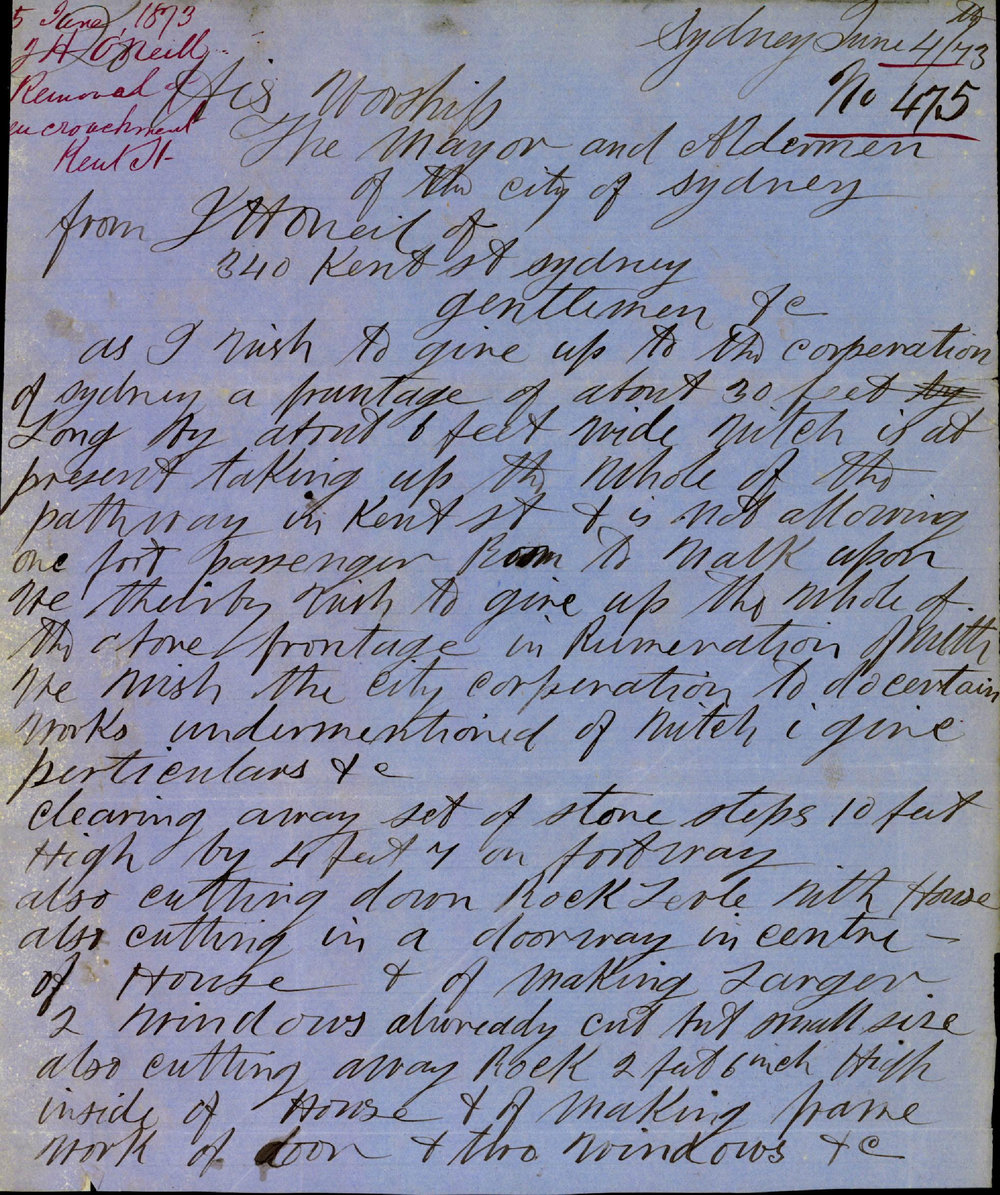 5 June, 1873
J H O'Neill
Removal of
encroachment
Kent St
Sydney June 4/73
No 475
His Worship
The Mayor and Aldermen
of the city of sydney
from J H ONeil of
340 Kent st sydney
gentlemen &c
as I wish to give up to the corperation
of sydney a fruntage of about 30 feet by
Long by about 6 feet wide witch is at
present taking up the whole of the
pathway in Kent st & is not allowing
one foot passenger Room to walk upon
We theirby wish to give up the whole of
the above frontage in Rumeration of
We wish the city corperation to do certain
works undermentioned of witch i give
perticulars & c
clearing away set of stone steps 10 feet
High by 4 feet 7 on footway
also cutting down Rock Levle with House
also cutting in a doorway in centre -
of House & of making Larger
2 windows alwready cut but small size
also cutting away Rock 2 feet 6 inch High
inside of House & of making frame
work of door & two windows & c